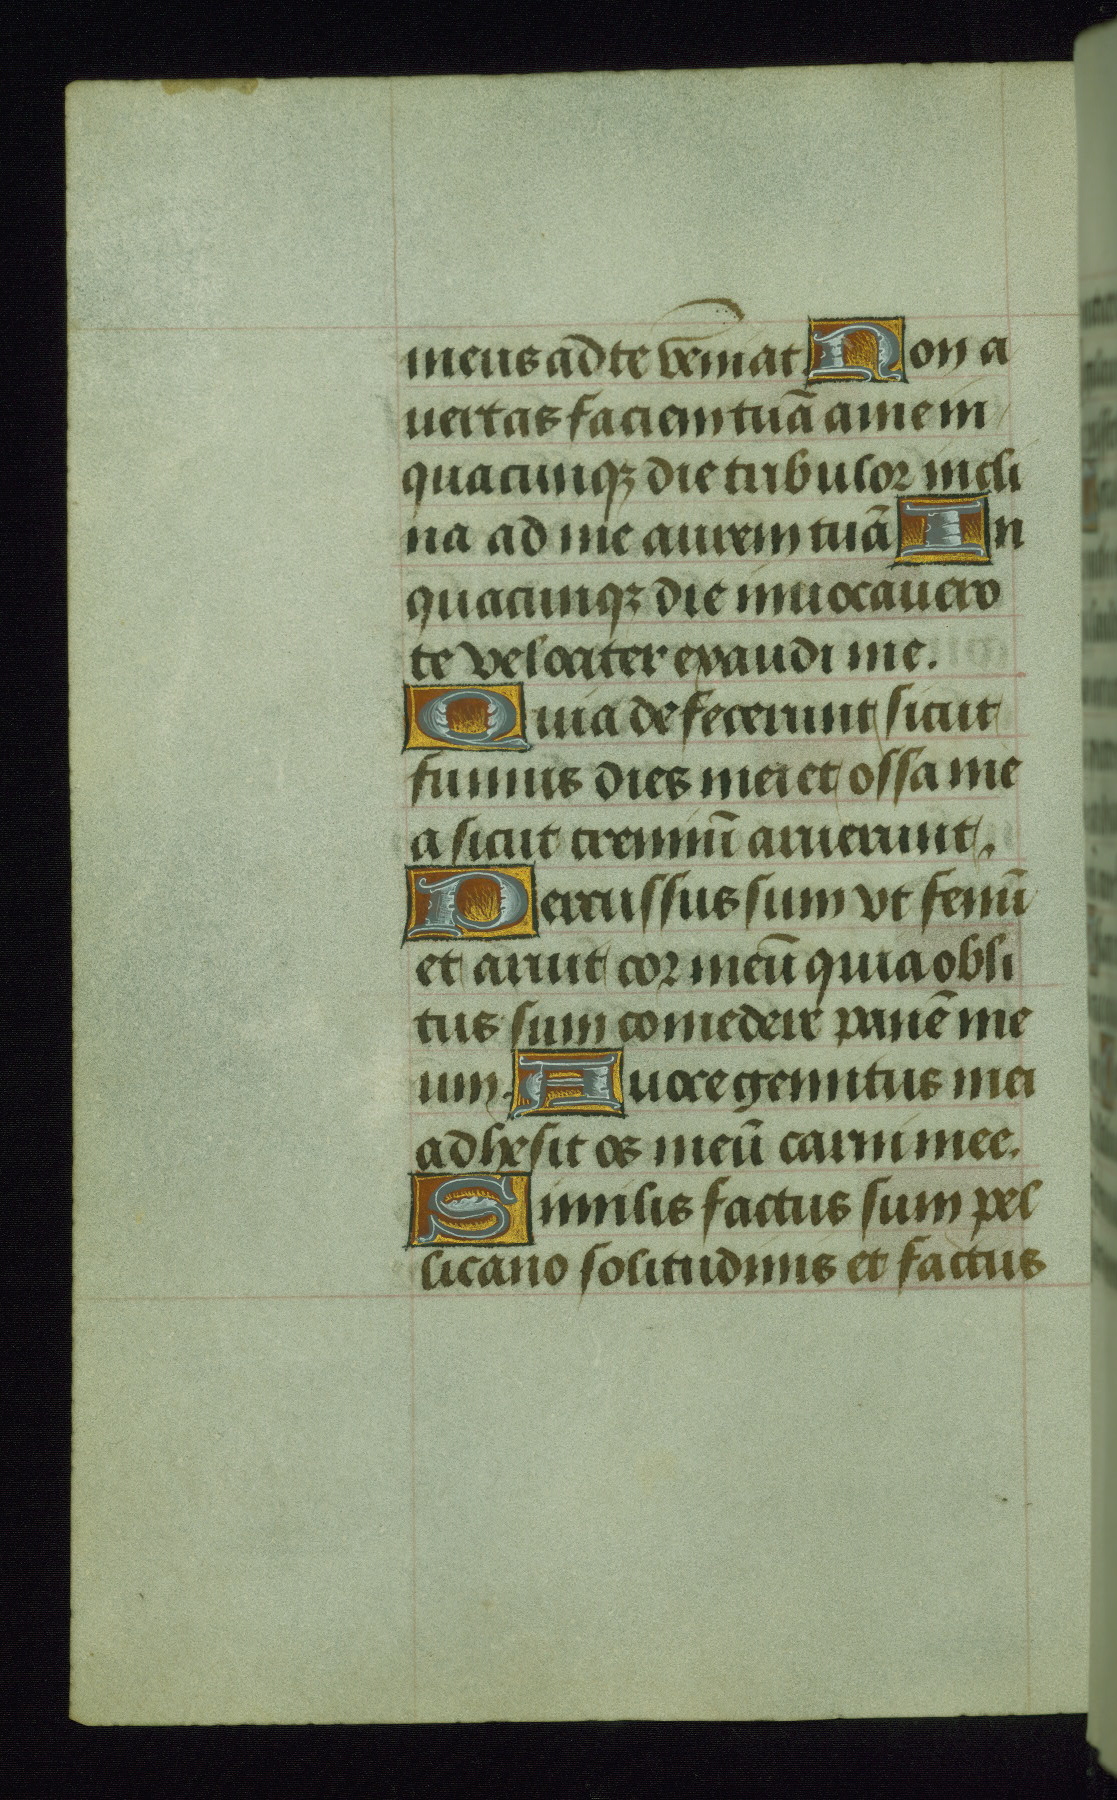 meus ad te veniat Non a
uertas faciem tuā a me in
quacunqꝫ die tribulor incli
na ad me aurem tuā In
quacunqꝫ die inuocauero
te velociter exaudi me.
Quia defecerunt sicut
fumus dies mei et ossa me
a sicut cremiū aruerunt.
Percussus sum vt fenū
et aruit cor meū quia obli
tus sum comedere panē me
um. A uoce gemitus mei
adhesit os meū carni mee.
Similis factus sum pel
licano solitudinis et factus